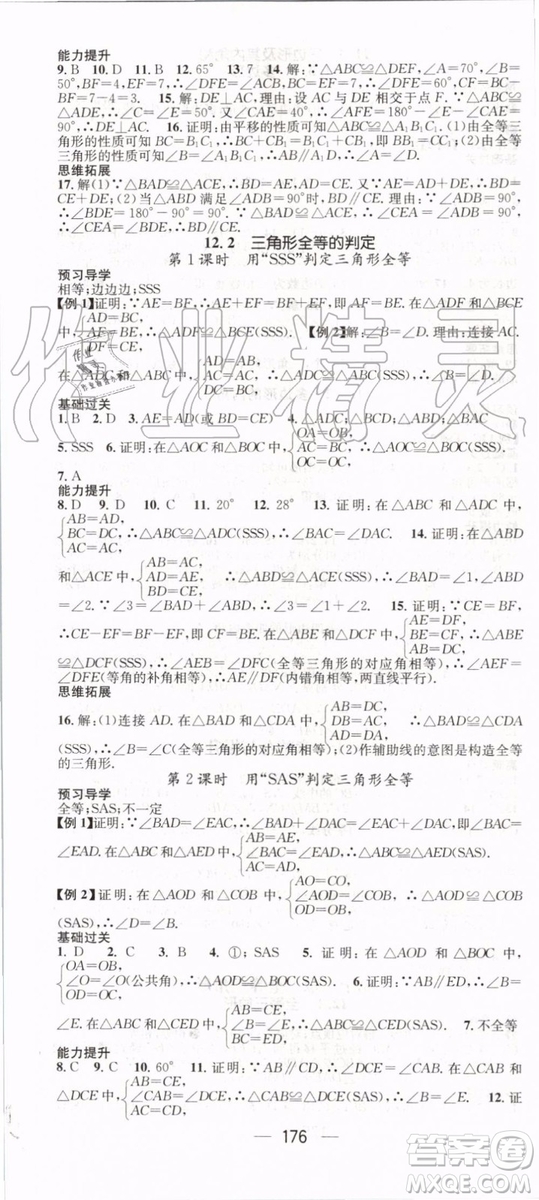 能力提升
9. B 10. D 11. B 12. 65° 13. 7 14. 解:∵△ABC≌△DEF,∠A=70°,∠B=
50°,BF=4,EF=7,∴∠D=∠A=70°,∠E=∠B=50°,BC=EF=7,∴CF=BC-
BF=7-4=3. 15. 解:DE⊥AC. 理由:设 AC 与 DE 相交于点 F. ∵△ABC≌
△ADE,∴∠CAB=∠E. 又∠CAE=40°,∴∠AFE=180°-∠E-∠CAE=
90°,∴DE⊥AC. 16. 证明:由平移的性质可知△ABC≌△A₁B₁C₁. ∵由全等三
角形的性质可知 BC=B₁C₁,∴BC+CB₁=B₁C₁+CB₁,即 BB₁=CC₁.
思维拓展
17. 解(1)∵△BAD≌△ACE,∴BD=AE,AD=CE. ∵AE=AD+DE,∴BD=
CE+DE;(2)当△ABD 满足∠ADB=90°时,BD∥CE. ∵∠ADB=90°,
∴∠BDE=180°-90°=90°. 又∵△BAD≌△ACE,∴∠CEA=∠ADB=90°,
∴∠CEA=∠BDE,∴BD∥CE.
12.2 三角形全等的判定
第 1 课时 用“SSS”判定三角形全等
预习导学
相等;边边边;SSS
【例 1】证明:∵AE=BE,∴AE+EF=BE+EF,即AF=BE. 在△ADF 和△BCE
中,{AD=BC, DF=CE, ∴△ADF≌△BCE(SSS). 【例 2】解:∠B=∠D. 理由:连接 AC.
在△ADC
基础过关
1. B 2. D 3. AE=AD(或 BD=CE) 4. △DCB;△ABD;△BAC
5. SSS 6. 证明:在△AOC 和△BOC 中,{AC=BC, OC=OC, ∴△AOC≌△BOC(SSS).
7. A
能力提升
8. D 9. D 10. C 11. 20° 12. 28° 13. 证明:在△ABC 和△ADC 中,
{AB=AD, BC=DC, AC=AC, ∴△ABC≌△ADC(SSS),∴∠BAC=∠DAC. 14. 证明:在△ABD
和△ACE 中,{AB=AC, AD=AE, BD=CE, ∴△ABD≌△ACE(SSS),∴∠BAD=∠1,∠ABD=
∠2. ∵∠3=∠BAD+∠ABD,∴∠3=∠1+∠2. 15. 证明:∵CE=BF,
∴CE-EF=BF-EF,即 CF=BE. 在△ABE 和△DCF 中,{AE=DF, BE=CF, AB=DC, ∴△ABE
≌△DCF(SSS),∴∠AEB=∠DFC(全等三角形的对应角相等),∴∠AEF=
∠DFE(等角的补角相等),∴AE∥DF(内错角相等,两直线平行).
思维拓展
16. 解:(1)连接 AD. 在△BAD 和△CDA 中,{AB=DC, DB=AC, AD=DA, ∴△BAD≌△CDA
(SSS),∴∠B=∠C(全等三角形的对应角相等);(2)作辅助线的意图是构造全等
的三角形.
第 2 课时 用“SAS”判定三角形全等
预习导学
全等;SAS;不一定
【例 1】证明:∵∠BAD=∠EAC,∴∠BAD+∠CAD=∠EAC+∠CAD,即∠BAC=
∠EAD. 在△ABC 和△AED 中,{AB=AE, ∠BAC=∠EAD, AC=AD, ∴△ABC≌△AED(SAS).
【例 2】证明:在△AOD 和△COB 中,{AO=CO, ∠AOD=∠COB, OD=OB, ∴△AOD≌△COB
(SAS),∴∠D=∠B.
基础过关
1. D 2. C 3. B 4. ①;SAS 5. 证明:在△AOD 和△BOC 中,
{OA=OB, ∠O=∠O(公共角), OD=OC, ∴△AOD≌△BOC(SAS). 6. 证明:∵AB∥ED,∴∠B=
∠E. 在△ABC 和△CED 中,{AB=CE, ∠B=∠E, BC=ED, ∴△ABC≌△CED(SAS). 7. 不全等
能力提升
8. C 9. C 10. 60° 11. 证明:∵AB∥CD,∴∠B=∠DCE. 在△ABC 和
△DCE 中,{AB=CE, BC=CD, ∴△ABC≌△DCE(SAS),∴∠A=∠E. 12. 证
176
作业精灵
答案圈